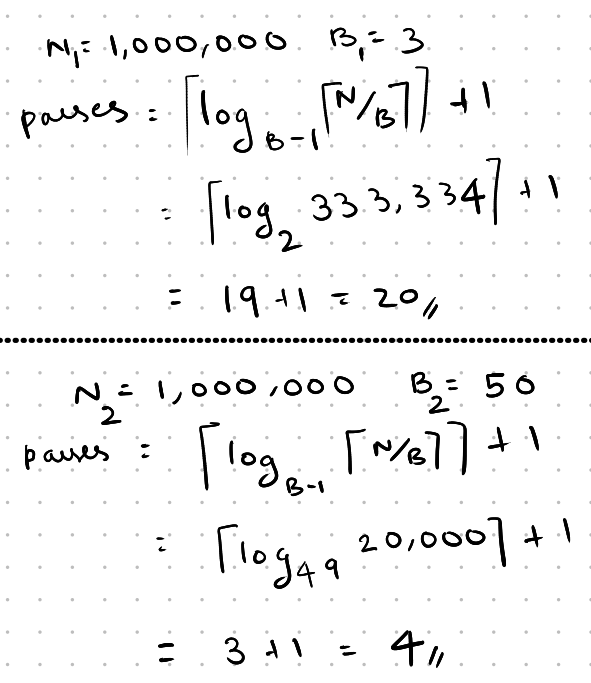 N₁ = 1,000,000 B₁ = 3
passes = ⌈log_{B-1} ⌈N/B⌉⌉ + 1
= ⌈log₂ 333,334⌉ + 1
= 19 + 1 = 20 //
N₂ = 1,000,000 B₂ = 50
passes = ⌈log_{B-1} ⌈N/B⌉⌉ + 1
= ⌈log₄₉ 20,000⌉ + 1
= 3 + 1 = 4 //